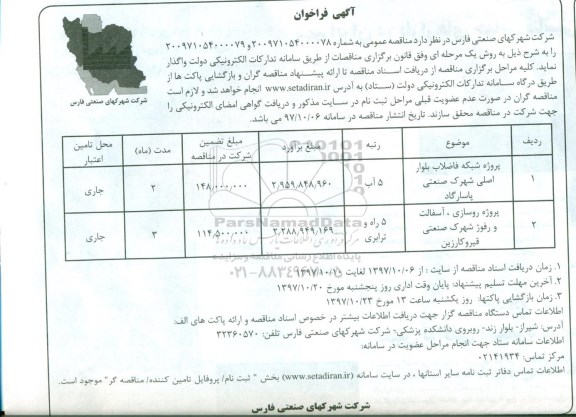 آگهی فراخوان
شرکت شهرکهای صنعتی فارس در نظر دارد مناقصه عمومی به شماره ۲۰۰۹۷۱۰۵۴۰۰۰۰۷۸ و ۲۰۰۹۷۱۰۵۴۰۰۰۰۷۹
را به شرح ذیل به روش یک مرحله ای وفق قانون برگزاری مناقصات از طریق سامانه تدارکات الکترونیکی دولت واگذار
نماید. کلیه مراحل برگزاری مناقصه از دریافت اسناد مناقصه تا ارائه پیشنهاد مناقصه گران و بازگشایی پاکت ها از
طریق درگاه سامانه تدارکات الکترونیکی دولت (ستاد) به آدرس www.setadiran.ir انجام خواهد شد و لازم است
مناقصه گران در صورت عدم عضویت قبلی مراحل ثبت نام در سایت مذکور و دریافت گواهی امضای الکترونیکی را
جهت شرکت در مناقصه محقق سازند. تاریخ انتشار مناقصه در سامانه ۹۷/۱۰/۰۶ می باشد.
شرکت شهرکهای صنعتی فارس
ردیف موضوع رتبه مبلغ برآورد مبلغ تضمین شرکت در مناقصه مدت (ماه) محل تامین اعتبار
۱ پروژه شبکه فاضلاب بلوار اصلی شهرک صنعتی پاسارگاد ۵ آب ۲,۹۵۹,۸۴۸,۹۶۰ ۱۴۸,۰۰۰,۰۰۰ ۲ جاری
۲ پروژه روسازی ، آسفالت و رفوژ شهرک صنعتی فیروکارزین ۵ راه و ترابری ۲,۲۸۸,۹۴۹,۱۶۹ ۱۱۴,۵۰۰,۰۰۰ ۳ جاری
ParsNamadData
پایگاه اطلاع رسانی مناقصه و مزایده
۱. زمان دریافت اسناد مناقصه از سایت : از ۱۳۹۷/۱۰/۰۶ لغایت ۱۳۹۷/۱۰/۱۰
۲. آخرین مهلت تسلیم پیشنهاد: پایان وقت اداری روز پنجشنبه مورخ ۱۳۹۷/۱۰/۲۰
۳. زمان بازگشایی پاکتها: روز یکشنبه ساعت ۱۳ مورخ ۱۳۹۷/۱۰/۲۳
اطلاعات تماس دستگاه مناقصه گزار جهت دریافت اطلاعات بیشتر در خصوص اسناد مناقصه و ارائه پاکت های الف:
آدرس: شیراز- بلوار زند- روبروی دانشکده پزشکی- شرکت شهرکهای صنعتی فارس تلفن: ۳۲۳۶۰۵۷۰
اطلاعات سامانه ستاد جهت انجام مراحل عضویت در سامانه:
مرکز تماس: ۰۲۱۴۱۹۳۴
اطلاعات تماس دفاتر ثبت نامه سایر استانها ، در سایت سامانه (www.setadiran.ir) بخش " ثبت نام/ پروفایل تامین کننده/ مناقصه گر" موجود است.
شرکت شهرکهای صنعتی فارس